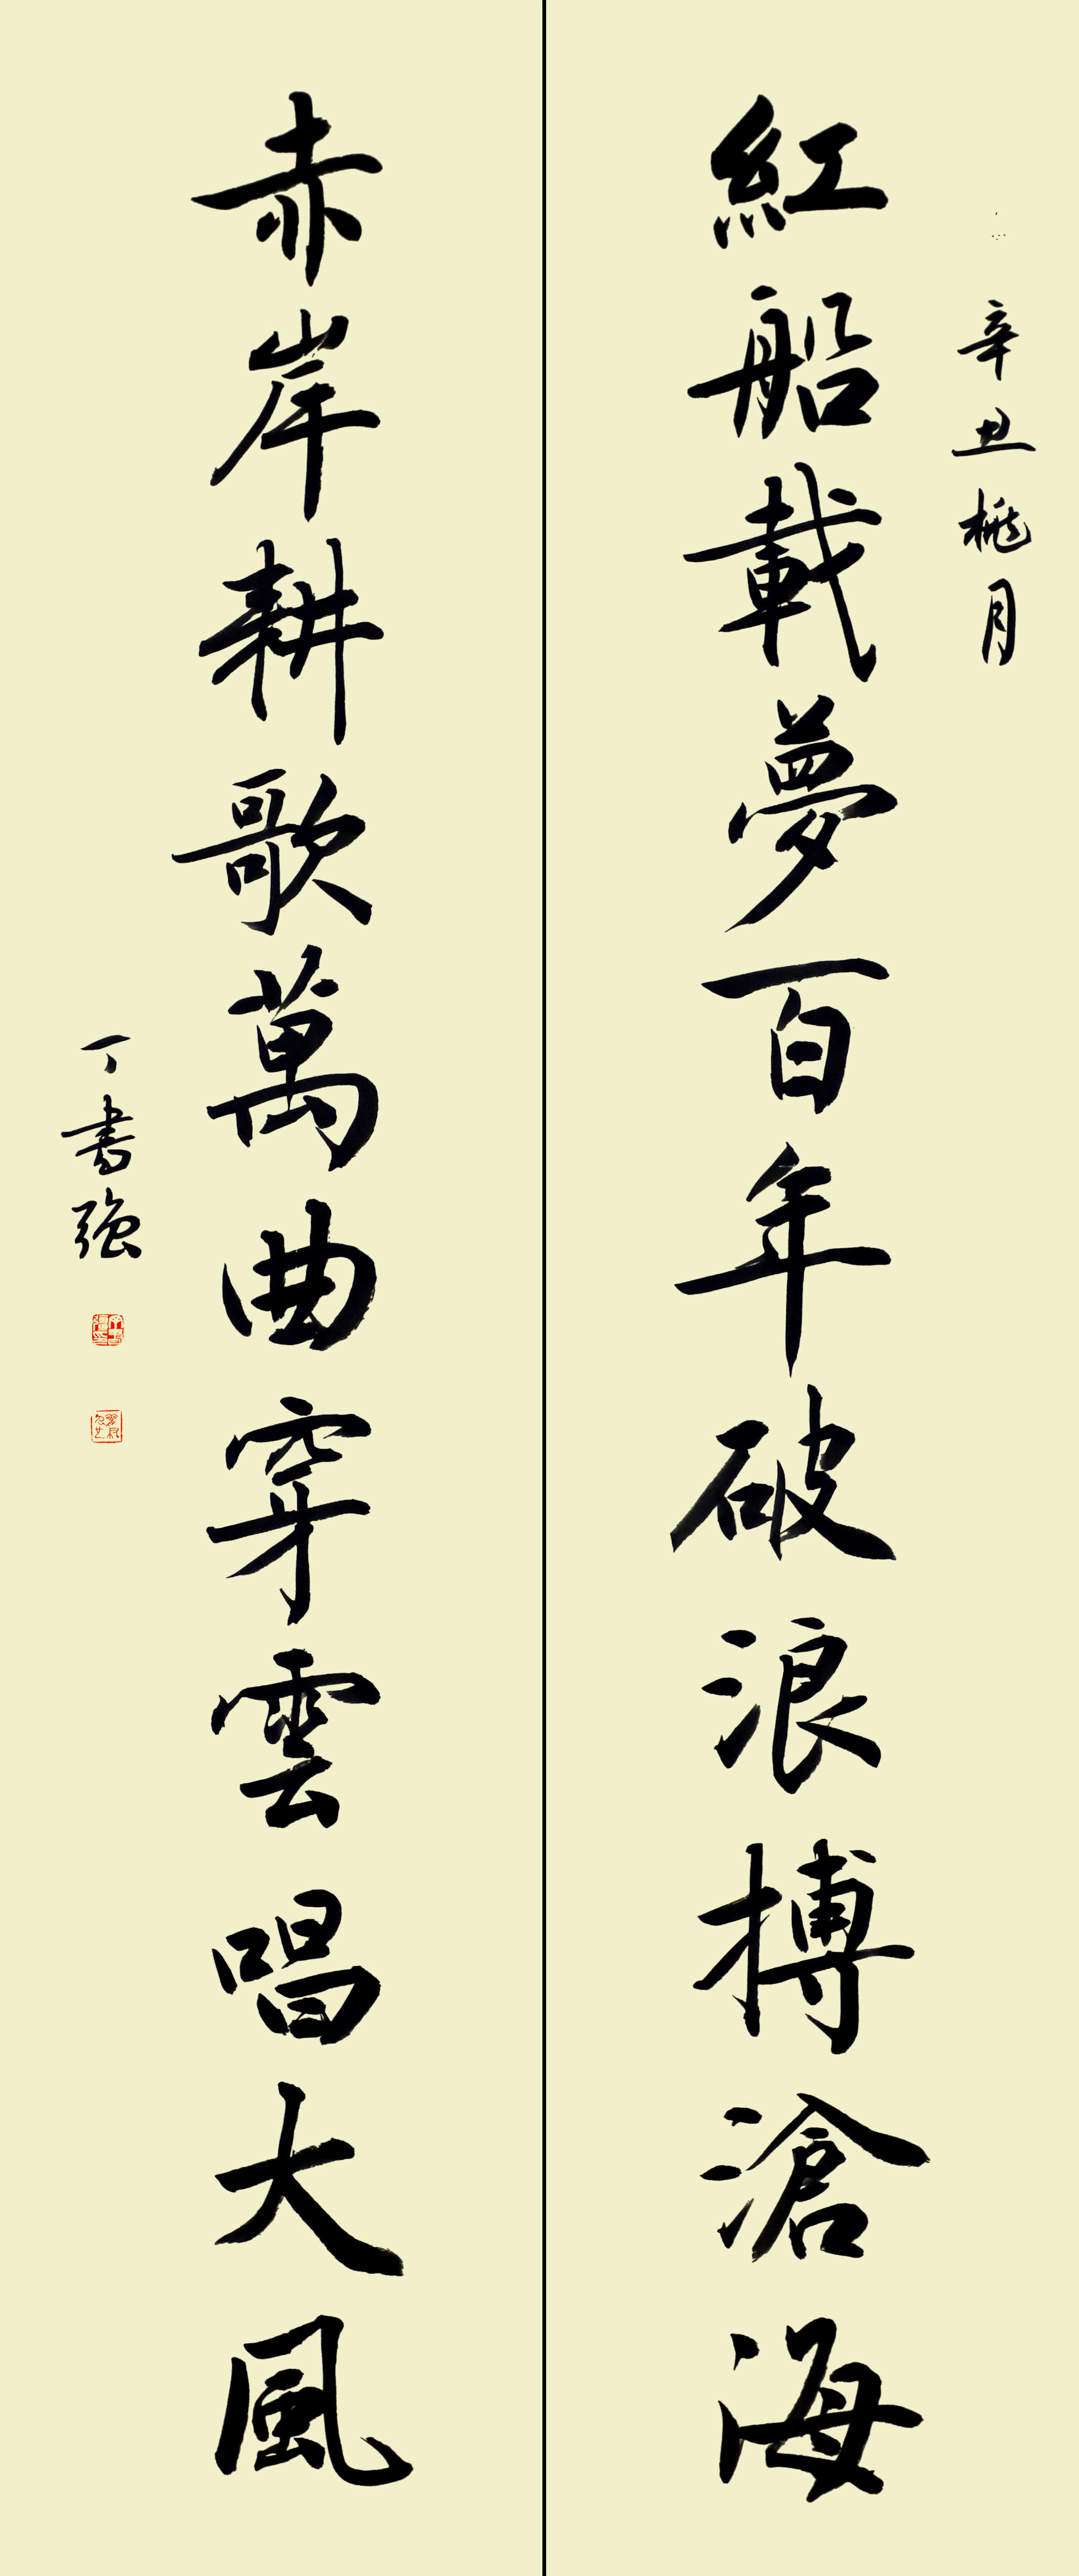 辛丑桃月
紅船載夢百年破浪搏滄海
赤岸耕歌萬曲穿雲唱大風
丁書強